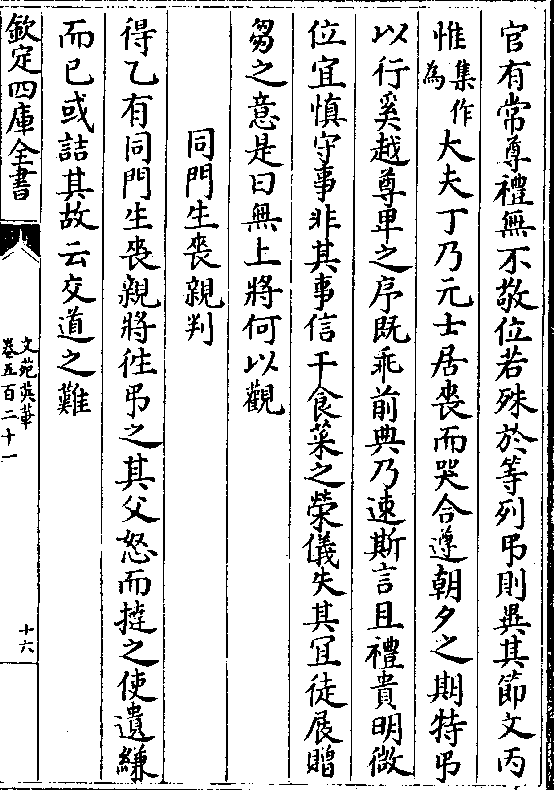 官有常尊禮無不敬位若殊於等列弔則異其節文丙
惟集作為大夫丁乃元士居喪而哭合遵朝夕之期特弔
以行奚越尊卑之序既乖前典乃速斯言且禮貴明微
位宜慎守事非其事信干食菜之榮儀失其冝徒展贈
芻之意是曰無上將何以觀
同門生喪親判
得乙有同門生喪親將徃弔之其父怒而撻之使遺縑
而已或詰其故云交道之難
欽定四庫全書
文苑英華
卷五百二十一
十六